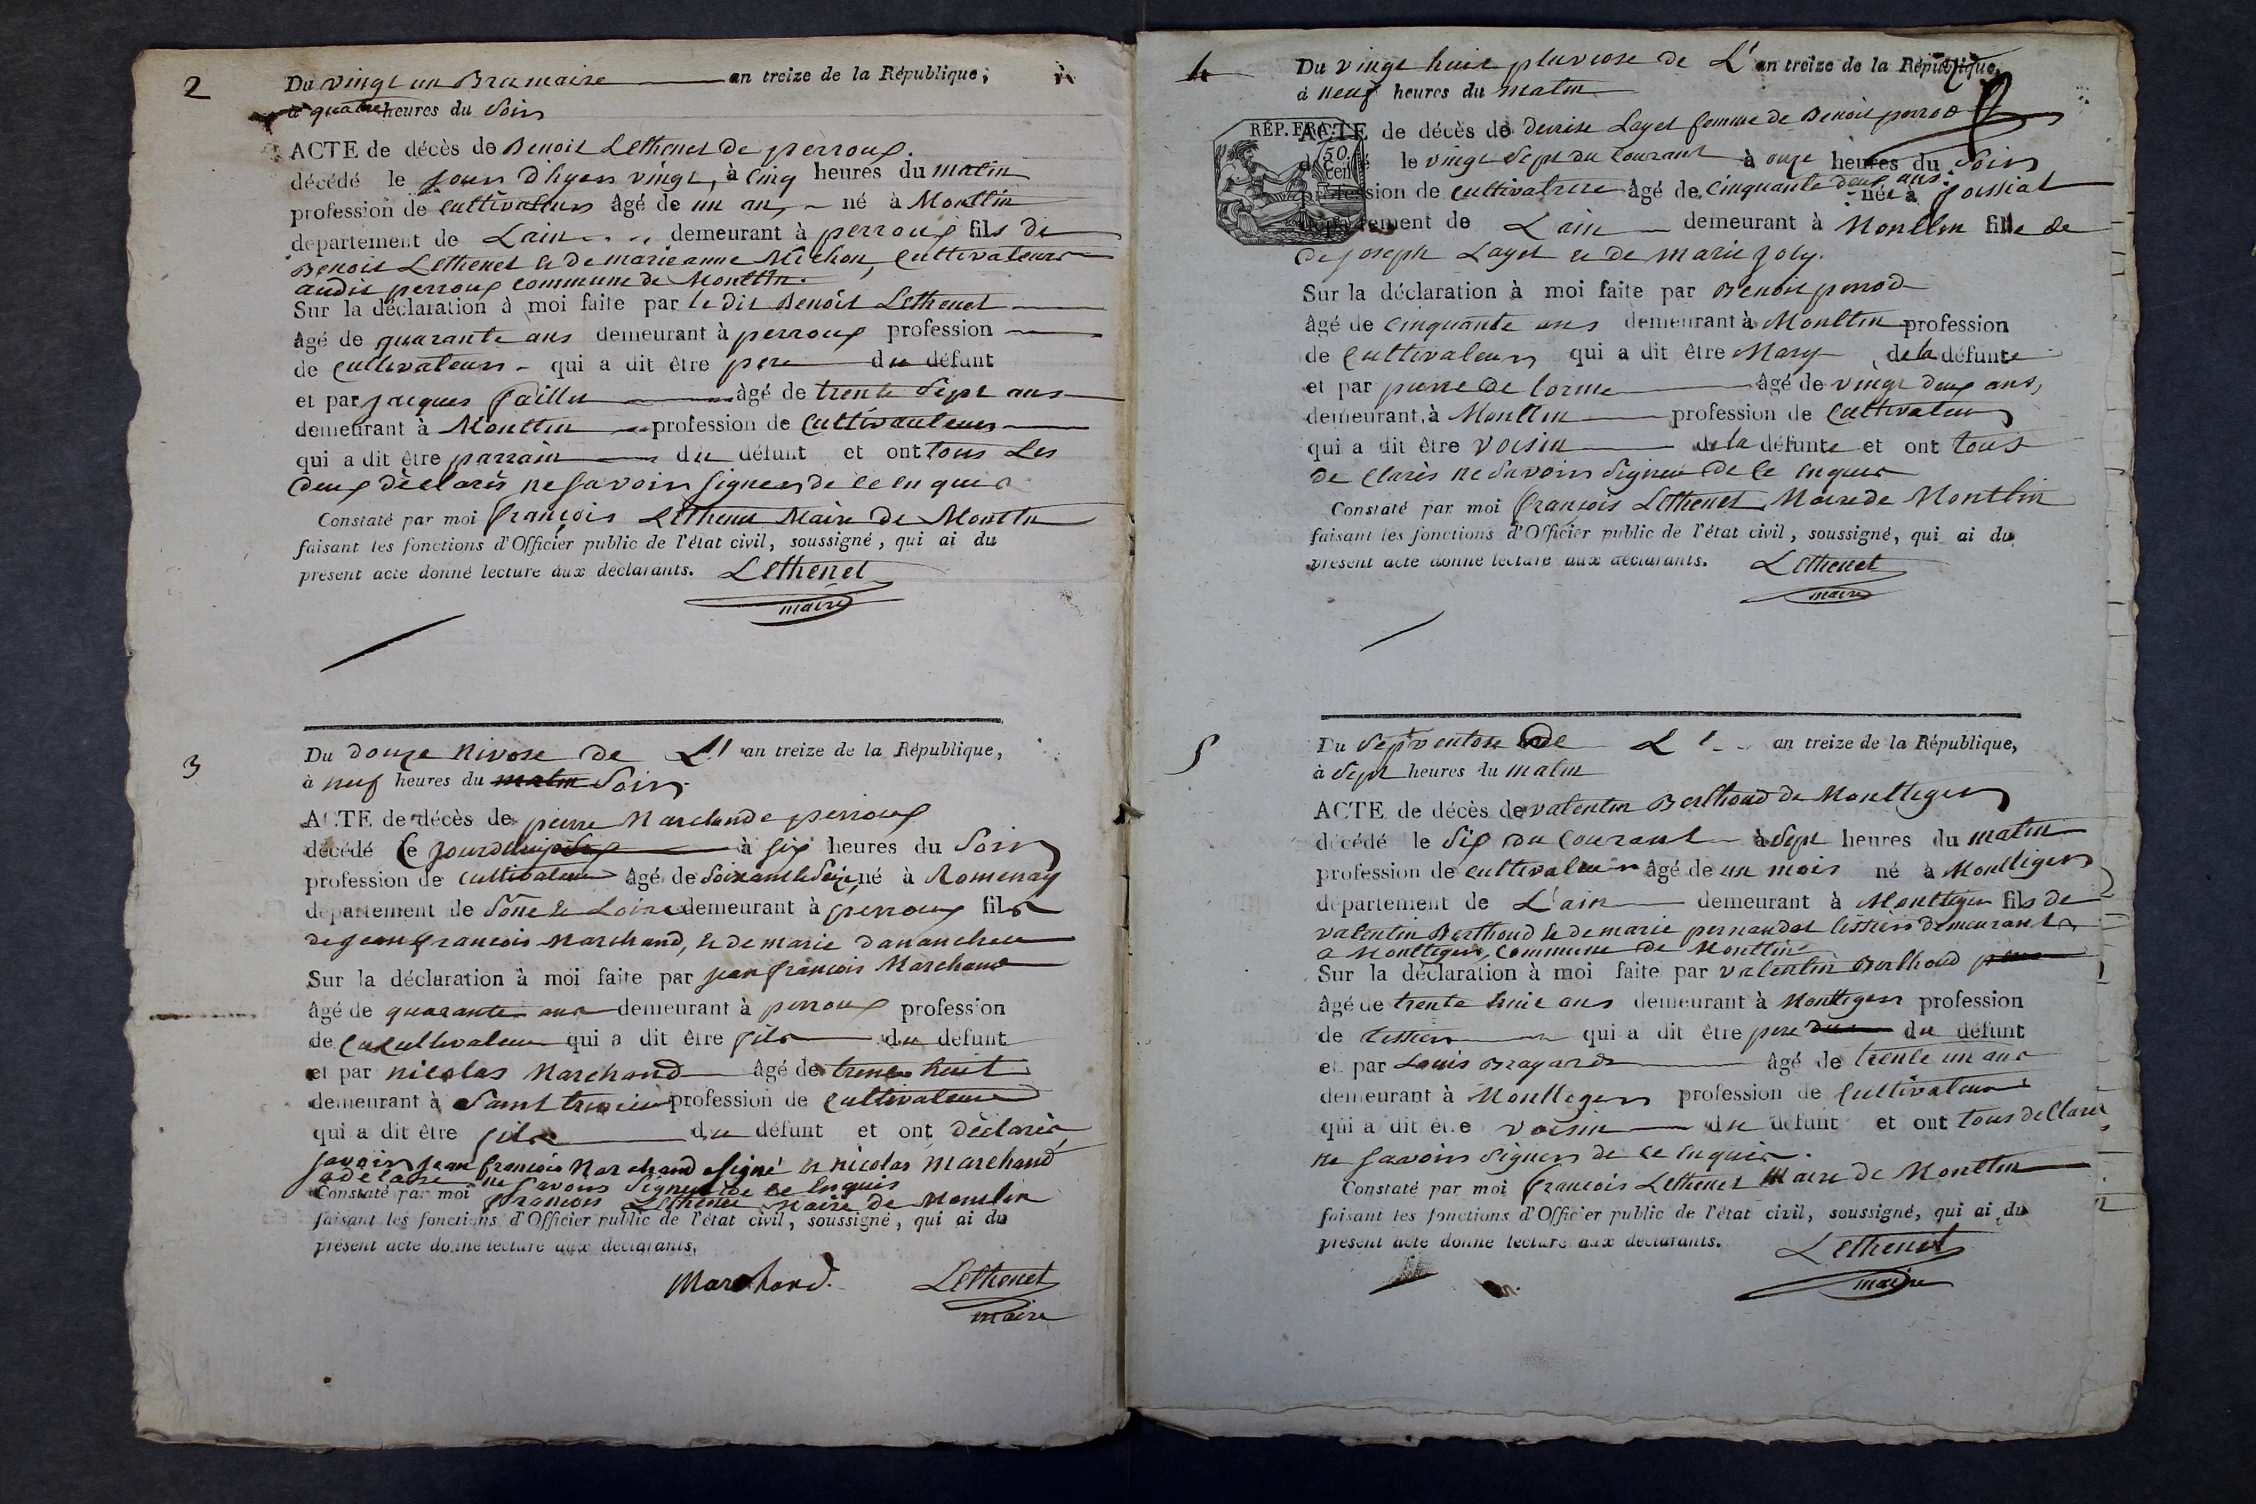 2
Du vingt un Brumaire an treize de la République,
à quatre heures du Soir
ACTE de décès de Benoit Lethenet de perroux.
décédé le jour d'hyer vingt, à Cinq heures du matin
profession de cultivateur âgé de un an, né à Montlin
département de Lain demeurant à perroux fils de
Benoit Lethenet & de marie anne Michon, cultivateurs
audit perroux commune de Montlin.
Sur la déclaration à moi faite par le dit Benoit Lethenet
âgé de quarante ans demeurant à perroux profession
de cultivateur qui a dit être pere du défunt
et par jacques âgé de trente Sept ans
demeurant à Montlin profession de Cultivateur
qui a dit être parrain du défunt et ont tous Les
deux déclarés ne Savoir signer de ce enquis
Constaté par moi françois Lethenet Maire de Montlin
faisant les fonctions d'Officier public de l'état civil, soussigné, qui ai du
présent acte donné lecture aux déclarants. Lethenet
maire
3
Du douze Nivose de L' an treize de la République,
à neuf heures du matin Soir
ACTE de décès de pierre Marchand perroux
décédé le jourdhuy à six heures du Soir
profession de cultivateur âgé de Soixante Seize né à Romenay
département de Sône & Loire demeurant à perroux fils
de jean françois Marchand, & de marie
Sur la déclaration à moi faite par jean françois Marchand
âgé de quarante ans demeurant à perroux profession
de cultivateur qui a dit être fils du défunt
et par nicolas Marchand âgé de trente huit
demeurant à Saint trivier profession de Cultivateur
qui a dit être fils du défunt et ont déclarés
savoir jean françois Marchand signé & nicolas marchand
a déclaré ne Savoir Signer de ce Enquis
Constaté par moi françois Lethenet Maire de Montlin
faisant les fonctions d'Officier public de l'état civil, soussigné, qui ai du
présent acte donné lecture aux déclarants.
Marchand. Lethenet
maire
4
Du vingt huit pluviose de L' an treize de la République,
à neuf heures du matin
RÉP. FRA.
50
cen
ACTE de décès de denise Layet femme de Benoit perrod
décédé le vingt Sept du Courant à onze heures du Soir
profession de cultivatrice âgé de Cinquante deux ans née à foissiat
département de Lain demeurant à Montlin fille de
de joseph Layet & de marie joly.
Sur la déclaration à moi faite par Benoit perrod
âgé de cinquante ans demeurant à Montlin profession
de Cultivateur qui a dit être Mary de la défunte
et par pierre de lorme âgé de vingt deux ans,
demeurant à Montlin profession de Cultivateur
qui a dit être voisin de la défunte et ont tous
de Clarés ne Savoir Signer de Ce enquis
Constaté par moi françois Lethenet Maire de Montlin
faisant les fonctions d'Officier public de l'état civil, soussigné, qui ai du
présent acte donné lecture aux déclarants. Lethenet
maire
5
Du Sept ventose de L' an treize de la République,
à Sept heures du matin
ACTE de décès de valentin Berthoud de Montteger
décédé le Six du Courant à Sept heures du matin
profession de cultivateur âgé de un mois né à Montteger
département de L'ain demeurant à Montteger fils de
valentin Berthoud & de marie pernaudat tissiers demeurants
a Montteger, Commune de Montlin
Sur la déclaration à moi faite par valentin Berthoud pere
âgé de trente huit ans demeurant à Montteger profession
de tissier qui a dit être pere du du défunt
et par Louis Brayard âgé de trente un ans
demeurant à Montteger profession de Cultivateur
qui a dit être voisin du défunt et ont tous déClaré
ne savoir Signer de ce enquis.
Constaté par moi françois Lethenet Maire de Montlin
faisant les fonctions d'Officier public de l'état civil, soussigné, qui ai du
présent acte donné lecture aux déclarants. Lethenet
maire